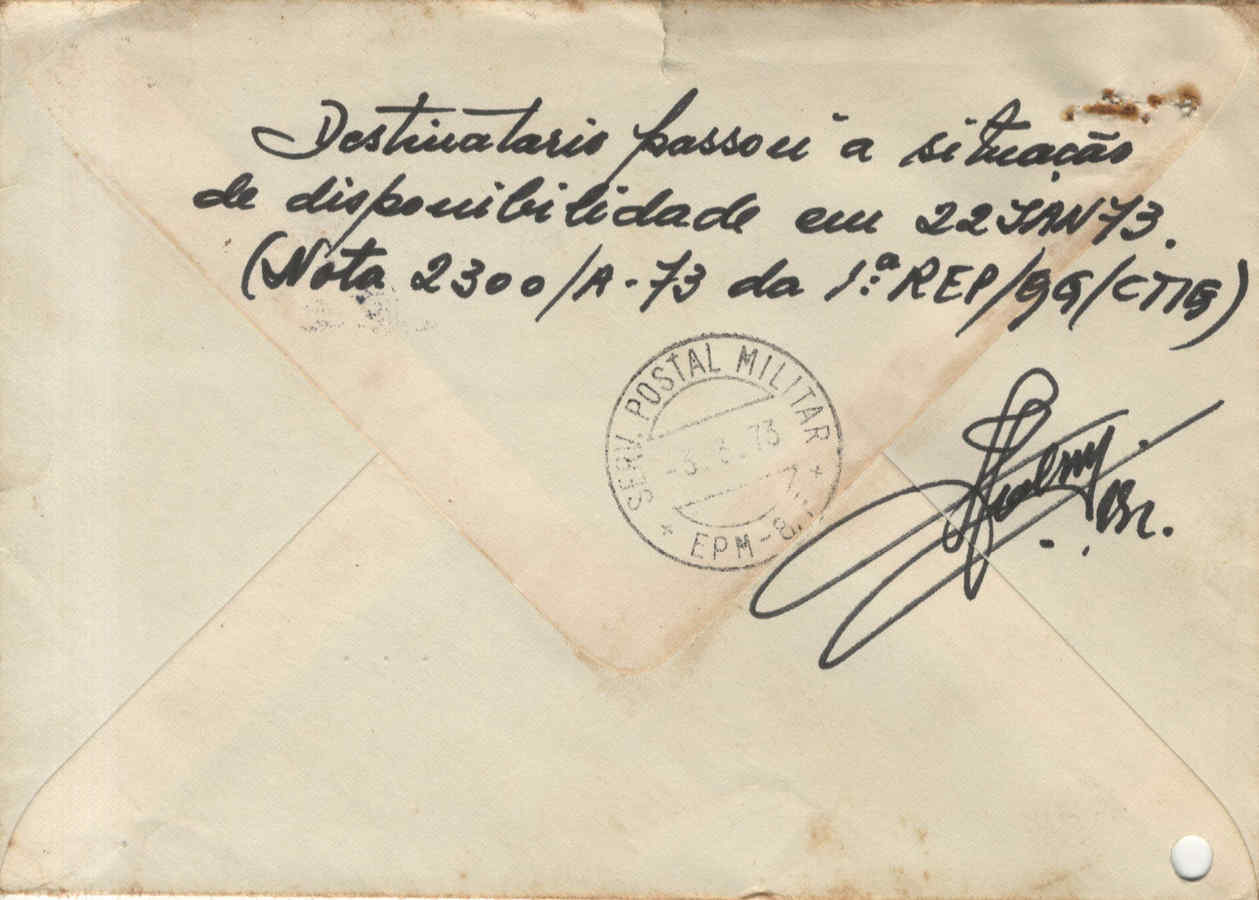 Destinatario passou à situação
de disponibilidade em 22JAN73.
(Nota 2300/A-73 da 1.ª REP/QG/CTIG)
SERV. POSTAL MILITAR
-3. 3. 73
* EPM-8